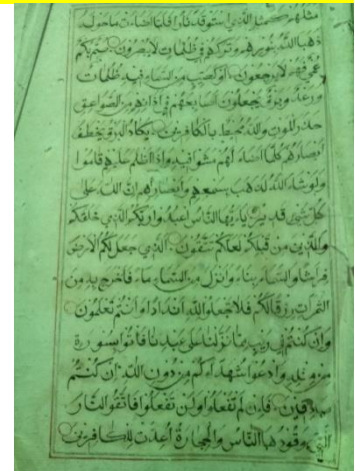 مثلهم كمثل الذي استوقد نارا فلما اضاءت ما حوله
ذهب الله بنورهم وتركهم في ظلمات لا يبصرون صم بكم
عمي فهم لا يرجعون او كصيب من السماء فيه ظلمات
ورعد وبرق يجعلون اصابعهم في اذانهم من الصواعق
حذر الموت والله محيط بالكافرين يكاد البرق يخطف
ابصارهم كلما اضاء لهم مشوا فيه واذا اظلم عليهم قاموا
ولو شاء الله لذهب بسمعهم وابصارهم ان الله على
كل شيء قدير يا ايها الناس اعبدوا ربكم الذي خلقكم
والذين من قبلكم لعلكم تتقون الذي جعل لكم الارض
فراشا والسماء بناء وانزل من السماء ماء فاخرج به من
الثمرات رزقا لكم فلا تجعلوا لله اندادا وانتم تعلمون
وان كنتم في ريب مما نزلنا على عبدنا فاتوا بسورة
من مثله وادعوا شهداءكم من دون الله ان كنتم
صادقين فان لم تفعلوا ولن تفعلوا فاتقوا النار
التي وقودها الناس والحجارة اعدت للكافرين